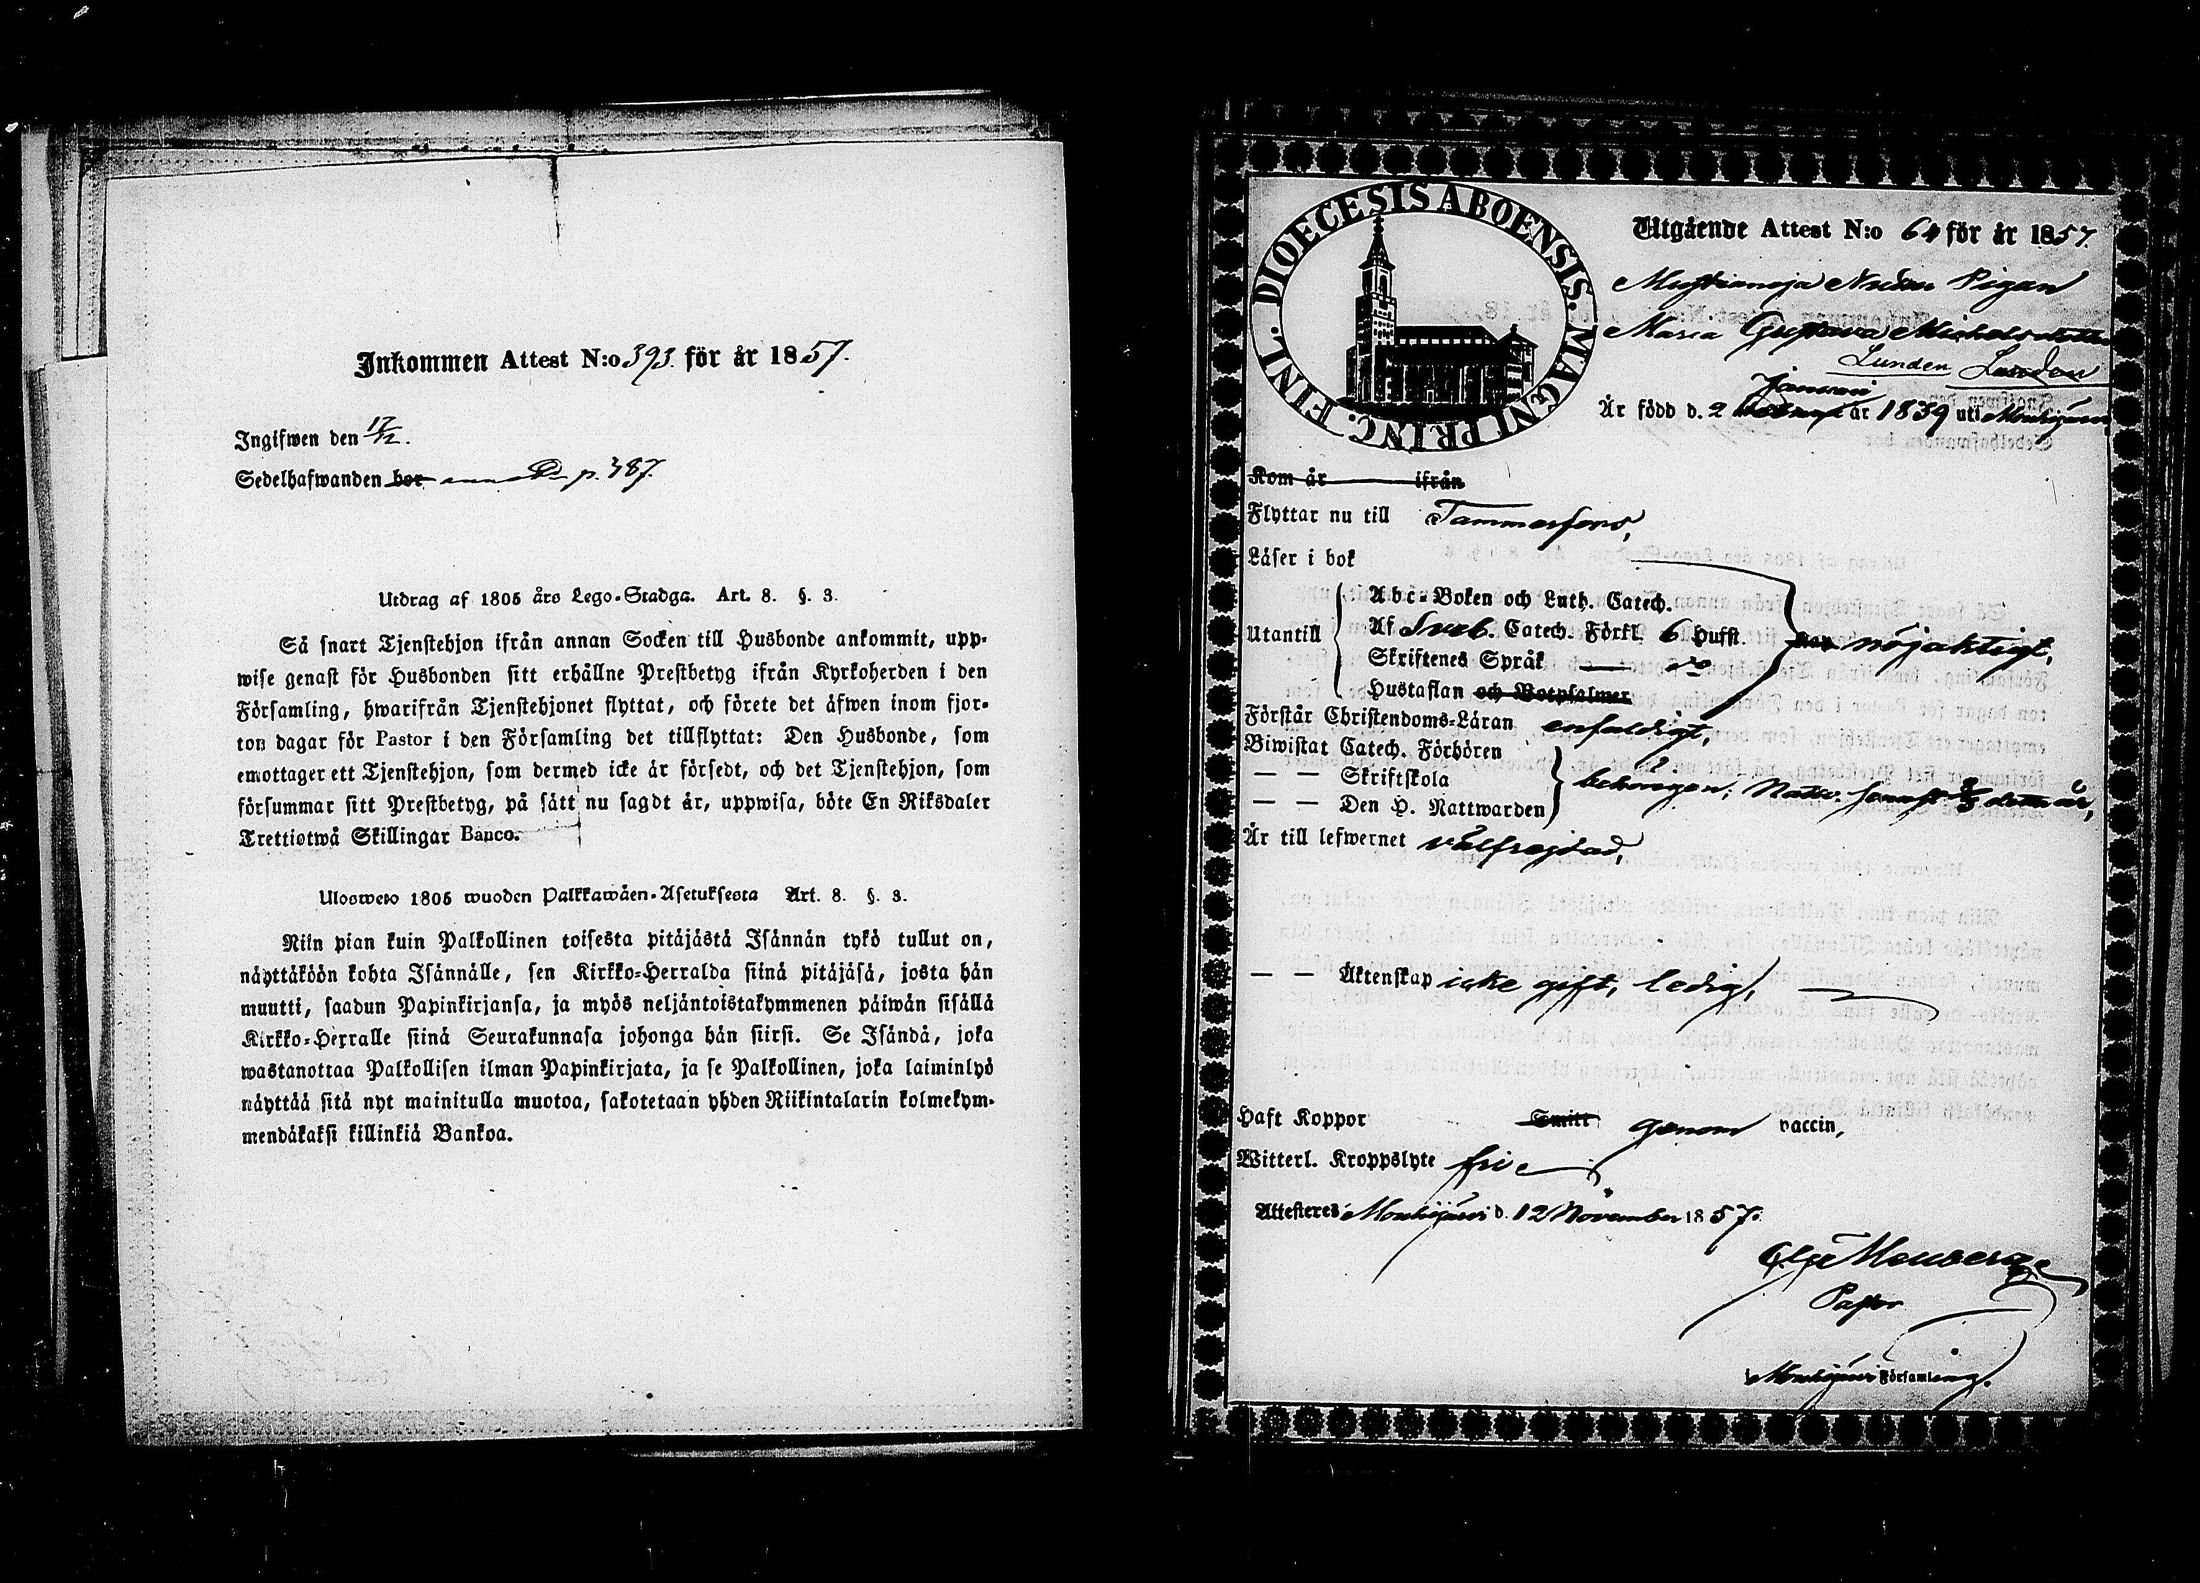 Inkommen Attest N:o 393. för år 1857.
Ingifwen den 17/12.
Sedelhafwanden bor p. 387.
Utdrag af 1805 års Lego-Stadga. Art. 8. §. 3.
Så snart Tjenstehjon ifrån annan Socken till Husbonde ankommit, upp-
wise genast för Husbonden sitt erhållne Prestbetyg ifrån Kyrkoherden i den
Församling, hwarifrån Tjenstehjonet flyttat, och förete det äfwen inom fjor-
ton dagar för Pastor i den Församling det tillflyttat: Den Husbonde, som
emottager ett Tjenstehjon, som dermed icke är försedt, och det Tjenstehjon, som
försummar sitt Prestbetyg, på sätt nu sagdt är, uppwisa, böte En Riksdaler
Trettiotwå Skillingar Banco.
Ulosweto 1805 wuoden Palkkawäen-Asetuksesta Art. 8. §. 3.
Niin pian kuin Palkollinen toisesta pitäjästä Isännän tykö tullut on,
näyttäköön kohta Isännälle, sen Kirkko-Herralda siinä pitäjäsä, josta hän
muutti, saadun Papinkirjansa, ja myös neljäntoistakymmenen päiwän sisällä
Kirkko-Herralle siinä Seurakunnasa johonga hän siirsi. Se Isändä, joka
wastanottaa Palkollisen ilman Papinkirjata, ja se Palkollinen, joka laiminlyö
näyttää sitä nyt mainitulla muotoa, sakotetaan yhden Riikintalarin kolmekym-
mendäkaksi killinkiä Bankoa.
DIOECESIS ABOENSIS. MAGNI PRINC. FINL.
Utgående Attest N:o 64 för år 1857.
Pigan
Maria Gustava Michelsdotter
Lunden Lunden
Januari
Är född d. 2 år 1839 uti Mouhijärvi
Kom år ifrån
Flyttar nu till Tammerfors,
Läser i bok
Utantill
Abc-Boken och Luth. Catech.
Af Sveb. Catech. Förkl. 6 Hufst. nöjaktigt,
Skriftenes Språk do
Hustaflan och Botpsalmer
Förstår Christendoms-Läran enfaldigt,
Biwistat Catech. Förhören
— — Skriftskola
— — Den H. Nattwarden
behörigen; Nattv. senast detta år,
Är till lefwernet välfrejdad,
— — Äktenskap icke gift, ledig,
Haft Koppor Smitt genom vaccin,
Witterl. Kroppslyte fri
Attesteres Mouhijärvi d. 12 November 1857.
Pastor
Mouhijärvi Församling.